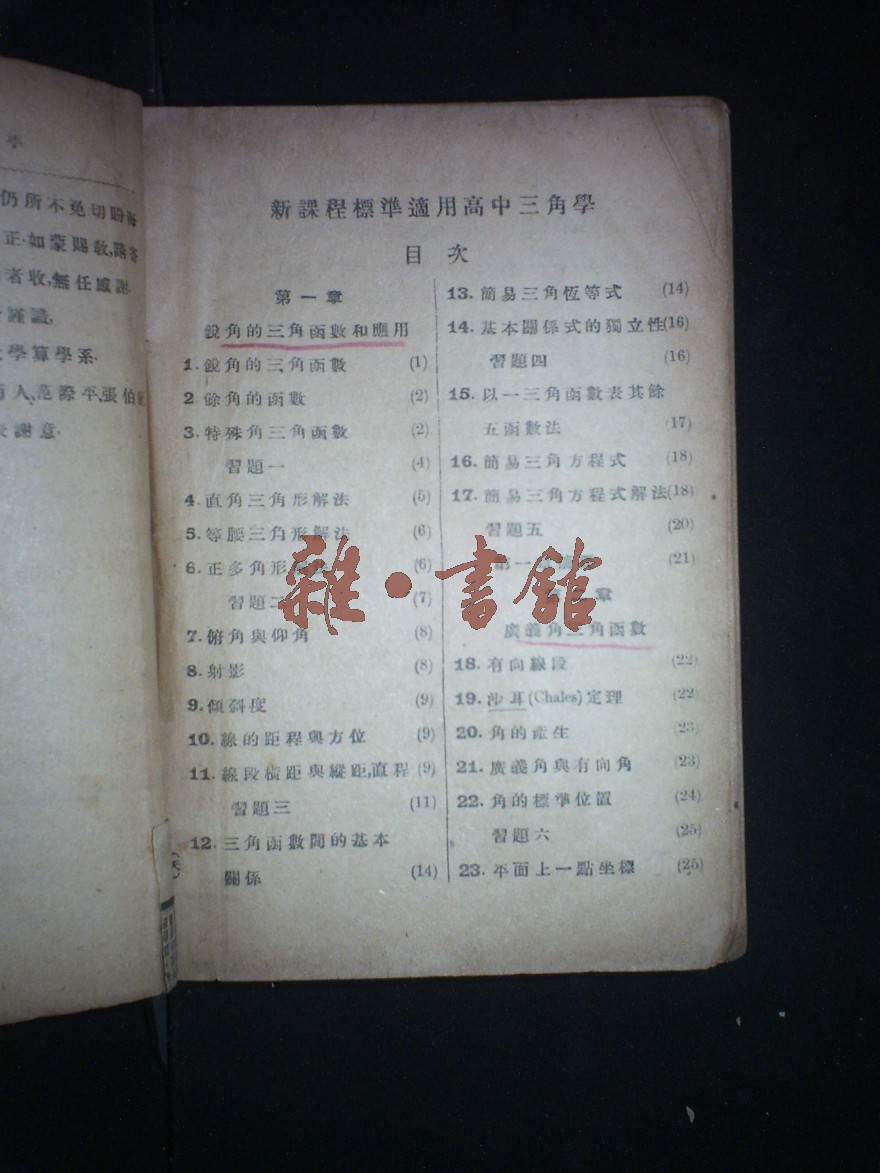 仍所不免切盼
正.如蒙賜教,請寄
者收,無任感謝.
謹識,
學算學系.
人,范際平,張伯
謝意.
新課程標準適用高中三角學
目次
第一章
銳角的三角函數和應用
1.銳角的三角函數 (1)
2.餘角的函數 (2)
3.特殊角三角函數 (2)
習題一 (4)
4.直角三角形解法 (5)
5.等腰三角形解法 (6)
6.正多角形 (6)
習題二 (7)
7.俯角與仰角 (8)
8.射影 (8)
9.傾斜度 (9)
10.線的距程與方位 (9)
11.線段橫距與縱距,直程 (9)
習題三 (11)
12.三角函數間的基本
關係 (14)
13.簡易三角恆等式 (14)
14.基本關係式的獨立性(16)
習題四 (16)
15.以一三角函數表其餘
五函數法 (17)
16.簡易三角方程式 (18)
17.簡易三角方程式解法(18)
習題五 (20)
第一 (21)
章
廣義角三角函數
18.有向線段 (22)
19.沙耳(Chales)定理 (22)
20.角的產生 (23)
21.廣義角與有向角 (23)
22.角的標準位置 (24)
習題六 (25)
23.平面上一點坐標 (25)
雜·書館